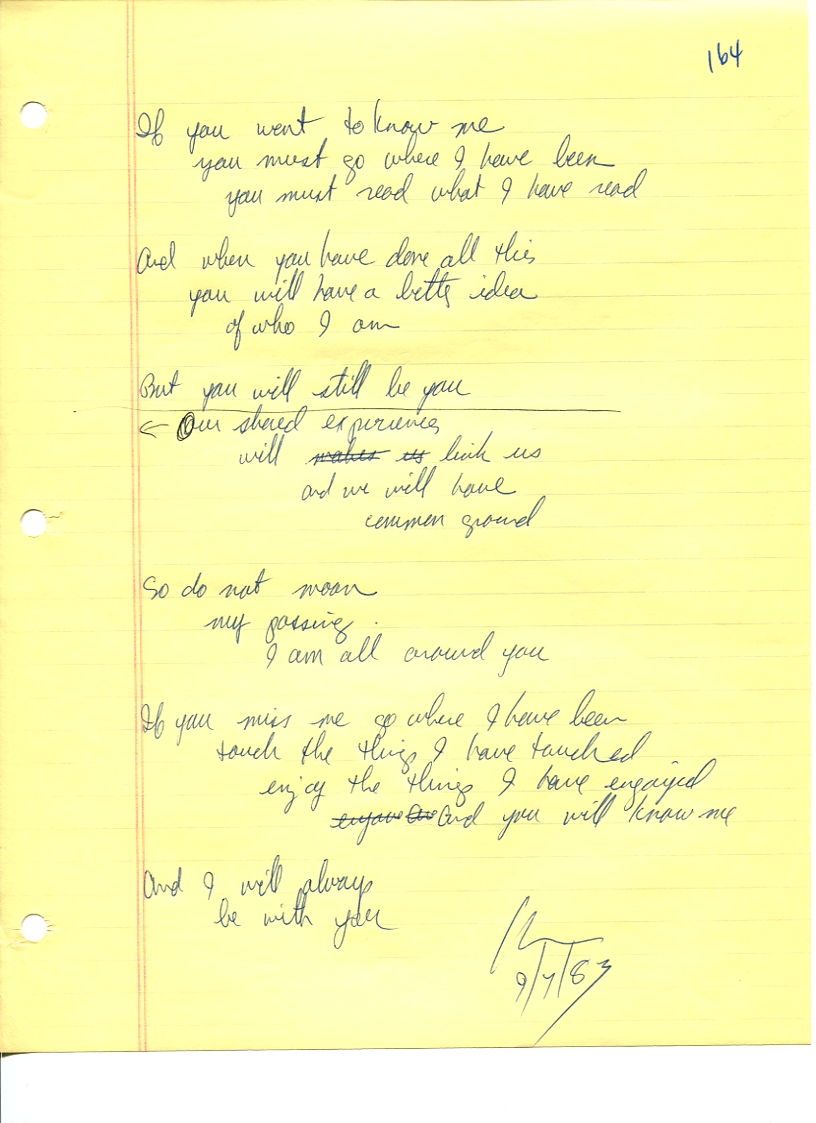 164
If you want to know me
you must go where I have been
you must read what I have read
And when you have done all this
you will have a better idea
of who I am
But you will still be you
← Our shared experiences
will makes us link us
and we will have
common ground
So do not moan
my passing.
I am all around you
If you miss me go where I have been
touch the things I have touched
enjoy the things I have enjoyed
And you will know me
And I will always
be with you
9/7/83